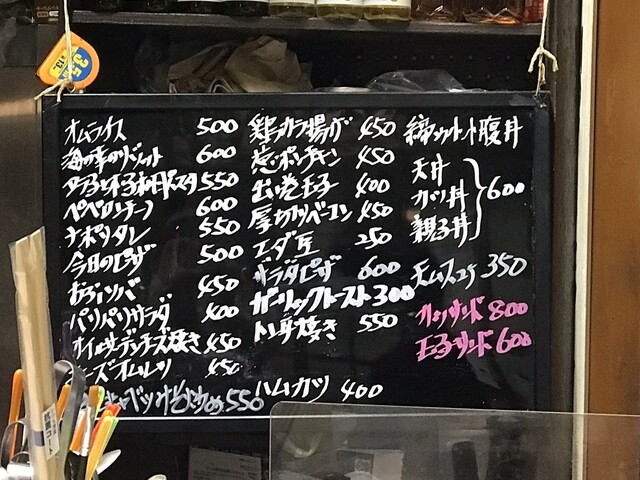 オムライス 500
海の幸のリゾット 600
タラコと木子和風パスタ 550
ペペロンチーノ 600
ナポリタン 550
今日のピザ 500
おろしソバ 450
パリパリサラダ 400
オイルサーディンチーズ焼き 450
チーズオムレツ 450
キャベツみそ炒め 550
鶏カラ揚げ 450
葱ポンチャン 450
出し巻玉子 400
厚切りベーコン 450
エダ豆 250
サラダピザ 600
ガーリックトースト 300
トン平焼き 550
ハムカツ 400
腹丼
天丼
カツ丼
親子丼
600
天ムス 350
カツサンド 800
玉子サンド 600
3.5